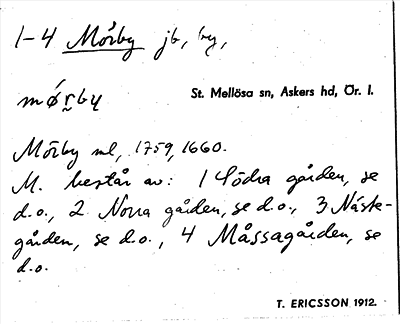 1-4 Mörby jb, by,
mǿrby
St. Mellösa sn, Askers hd, Ör. l.
Mörby ml, 1759, 1660.
M. består av: 1 Södra gården, se
d.o., 2 Norra gården, se d.o., 3 Näste-
gården, se d.o., 4 Måssagården, se
d.o.
T. ERICSSON 1912.